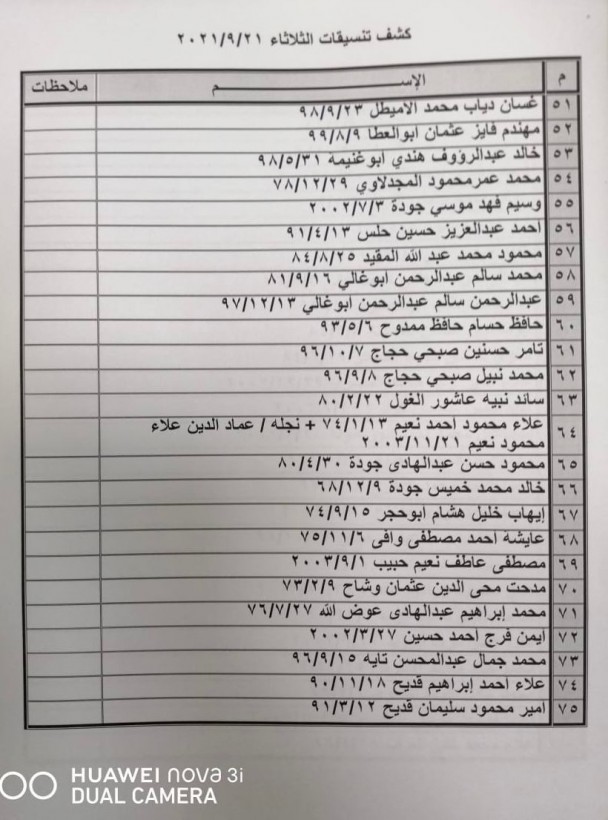 كشف تنسيقات الثلاثاء ٢٠٢١/٩/٢١
م الإســـم ملاحظات
٥١ غسان دياب محمد الاميطل ٩٨/٩/٢٣
٥٢ مهندم فايز عثمان ابوالعطا ٩٩/٨/٩
٥٣ خالد عبدالرؤوف هندي ابوغنيمة ٩٨/٥/٣١
٥٤ محمد عمرمحمود المجدلاوي ٧٨/١٢/٢٩
٥٥ وسيم فهد موسي جودة ٢٠٠٢/٧/٣
٥٦ احمد عبدالعزيز حسين حلس ٩١/٤/١٣
٥٧ محمود محمد عبد الله المقيد ٨٤/٨/٢٥
٥٨ محمد سالم عبدالرحمن ابوغالي ٨١/٩/١٦
٥٩ عبدالرحمن سالم عبدالرحمن ابوغالي ٩٧/١٢/١٣
٦٠ حافظ حسام حافظ ممدوح ٩٣/٥/٦
٦١ تامر حسنين صبحي حجاج ٩٦/١٠/٧
٦٢ محمد نبيل صبحي حجاج ٩٦/٩/٨
٦٣ سائد نبيه عاشور الغول ٨٠/٢/٢٢
٦٤ علاء محمود احمد نعيم ٧٤/١/١٣ + نجله / عماد الدين علاء
محمود نعيم ٢٠٠٣/١١/٢١
٦٥ محمود حسن عبدالهادى جودة ٨٠/٤/٣٠
٦٦ خالد محمد خميس جودة ٦٨/١٢/٩
٦٧ إيهاب خليل هشام ابوحجر ٧٤/٩/١٥
٦٨ عايشه احمد مصطفى وافى ٧٥/١١/٦
٦٩ مصطفى عاطف نعيم حبيب ٢٠٠٣/٩/١
٧٠ مدحت محى الدين عثمان وشاح ٧٣/٢/٩
٧١ محمد إبراهيم عبدالهادى عوض الله ٧٦/٧/٢٧
٧٢ ايمن فرج احمد حسين ٢٠٠٢/٣/٢٧
٧٣ محمد جمال عبدالمحسن تايه ٩٦/٩/١٥
٧٤ علاء احمد إبراهيم قديح ٩٠/١١/١٨
٧٥ امير محمود سليمان قديح ٩١/٣/١٢
HUAWEI nova 3i
DUAL CAMERA